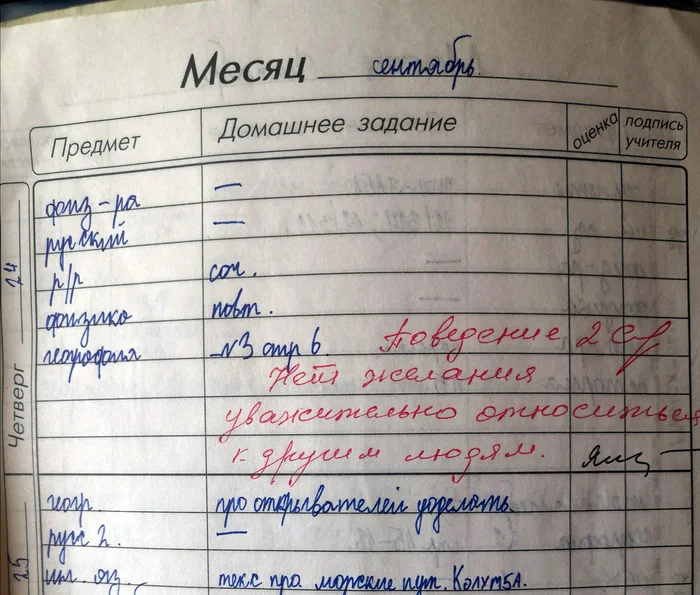 Месяц сентябрь.
Предмет Домашнее задание оценка подпись учителя
Четверг 24
физ-ра —
русский —
р/р соч.
физика повт.
география №3 стр 6. Поведение 2
Нет желания
уважительно относиться
к другим людям.
25
геогр. про открывателей доделать.
русс 2. —
ин. яз. текс про морские пут. Колумба.